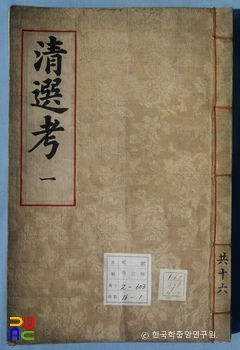 清選考
一
共十六
2-603
16-1
© 한국학중앙연구원